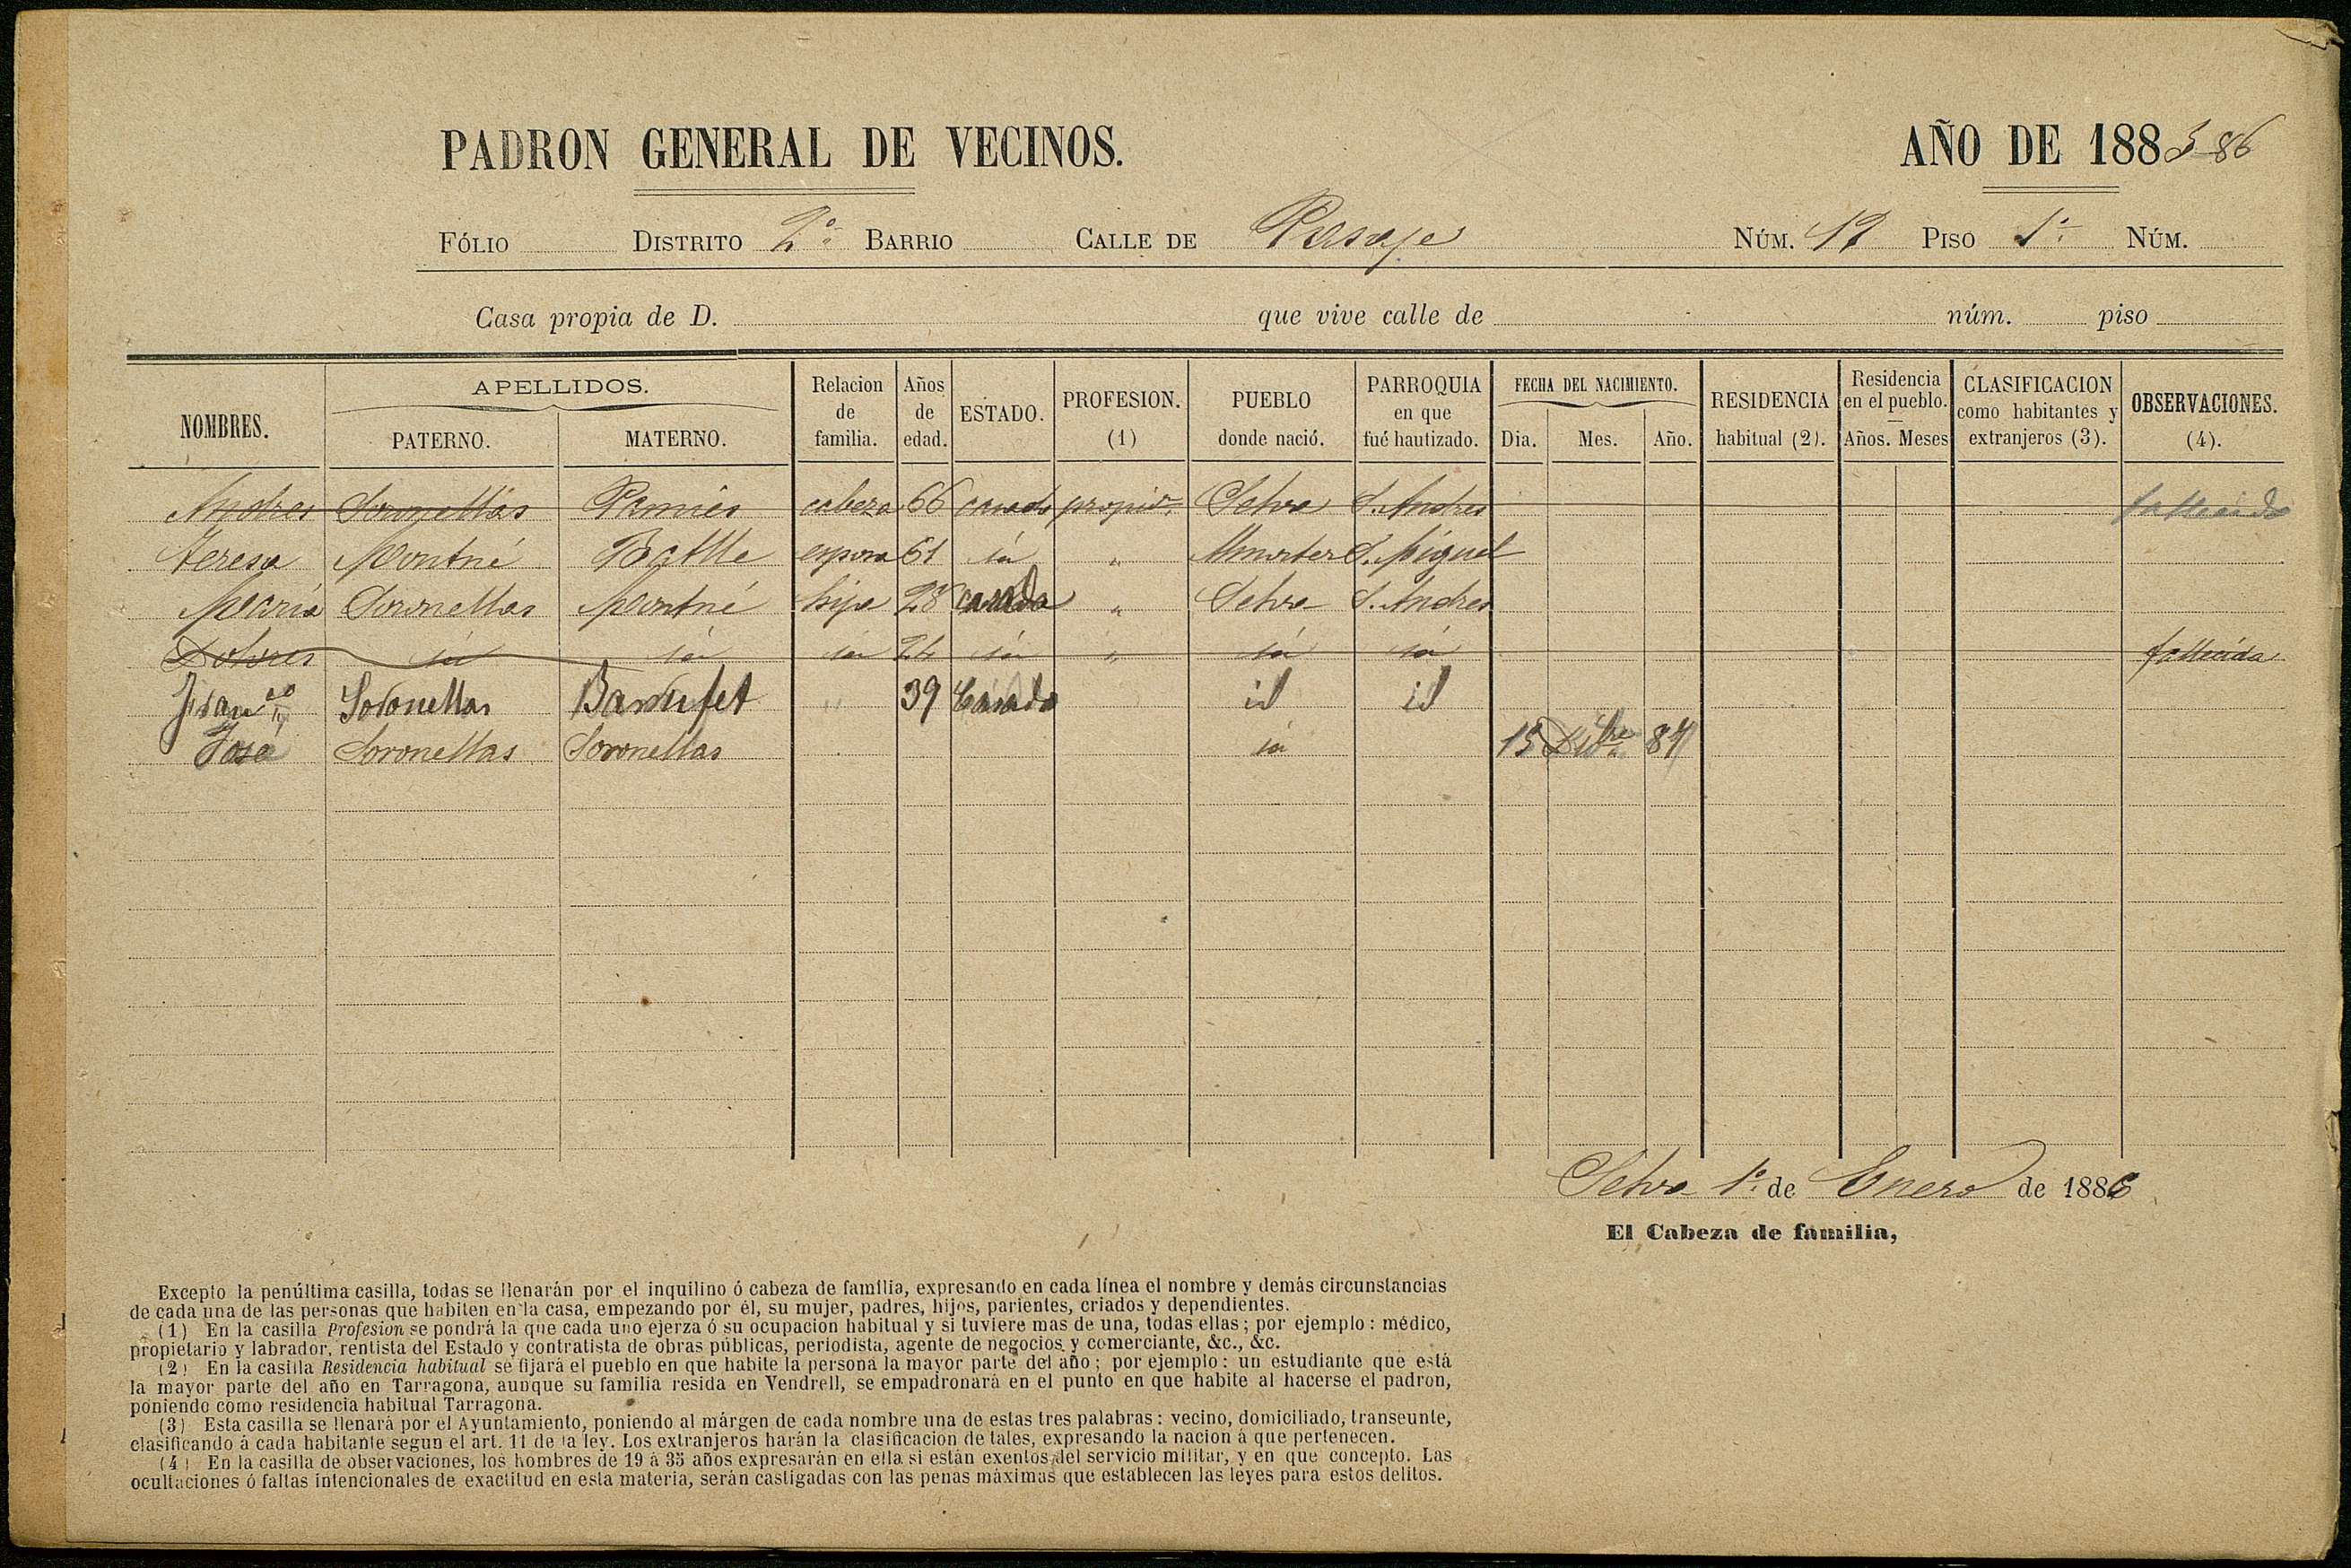 PADRON GENERAL DE VECINOS. AÑO DE 1885-86
FÓLIO DISTRITO 2º BARRIO CALLE DE Pasaje NÚM. 17 PISO 1º NÚM.
Casa propia de D. que vive calle de núm. piso
NOMBRES. APELLIDOS. PATERNO. MATERNO. Relacion de familia. Años de edad. ESTADO. PROFESION. (1) PUEBLO donde nació. PARROQUIA en que fué bautizado. FECHA DEL NACIMIENTO. Dia. Mes. Año. RESIDENCIA habitual (2). Residencia en el pueblo. Años. Meses CLASIFICACION como habitantes y extranjeros (3). OBSERVACIONES. (4).
Andres Soronellas Pamies cabeza 66 casado propio. Selva S. Andres fallecido
Teresa Montné Batlle esposa 61 id " Almoster S. Miguel
Maria Soronellas Montné hija 28 casada " Selva S. Andres
Dolores id id id 24 id " id id fallecida
Franco Soronellas Barrufet " 39 Casado id id
José Soronellas Soronellas id 15 Dibre 87
Selva 1º de Enero de 1886
El Cabeza de familia,
Excepto la penúltima casilla, todas se llenarán por el inquilino ó cabeza de familia, expresando en cada línea el nombre y demás circunstancias
de cada una de las personas que habiten en la casa, empezando por él, su mujer, padres, hijos, parientes, criados y dependientes.
(1) En la casilla Profesion se pondrá la que cada uno ejerza ó su ocupacion habitual y si tuviere mas de una, todas ellas; por ejemplo: médico,
propietario y labrador, rentista del Estado y contratista de obras públicas, periodista, agente de negocios y comerciante, &c., &c.
(2) En la casilla Residencia habitual se fijará el pueblo en que habite la persona la mayor parte del año; por ejemplo: un estudiante que está
la mayor parte del año en Tarragona, aunque su familia resida en Vendrell, se empadronará en el punto en que habite al hacerse el padron,
poniendo como residencia habitual Tarragona.
(3) Esta casilla se llenará por el Ayuntamiento, poniendo al márgen de cada nombre una de estas tres palabras: vecino, domiciliado, transeunte,
clasificando á cada habitante segun el art. 11 de la ley. Los extranjeros harán la clasificacion de tales, expresando la nacion á que pertenecen.
(4) En la casilla de observaciones, los hombres de 19 á 35 años expresarán en ella si están exentos del servicio militar, y en que concepto. Las
ocultaciones ó faltas intencionales de exactitud en esta materia, serán castigadas con las penas máximas que establecen las leyes para estos delitos.